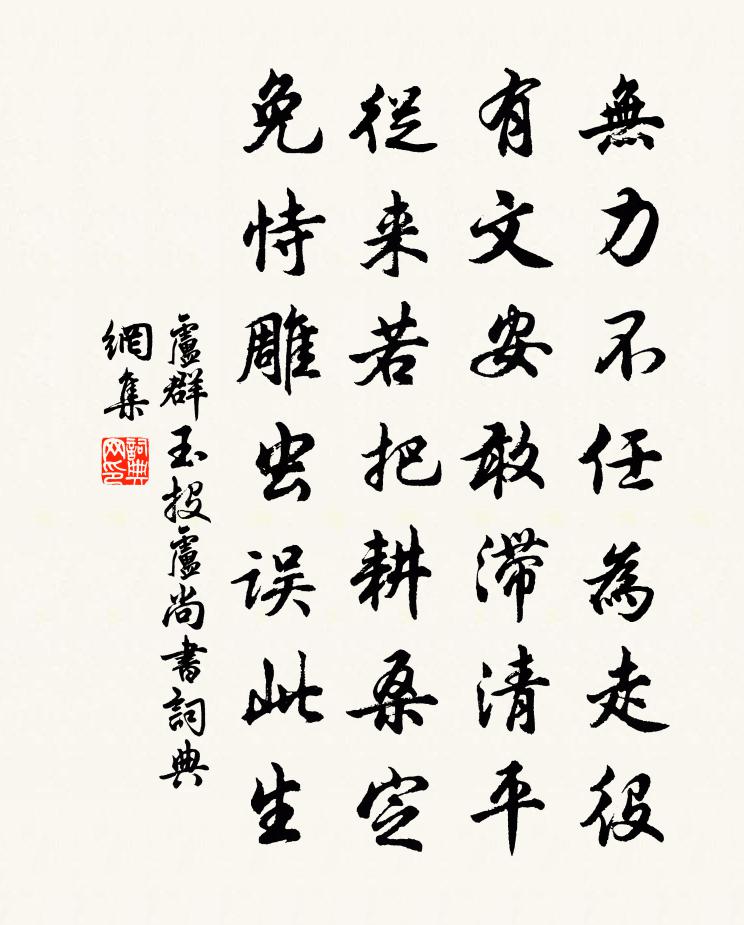 無力不任為走役
有文安敢滯清平
従来若把耕桑定
免恃雕虫误此生
盧群玉投盧尚書詞典
網集
詞典
网印